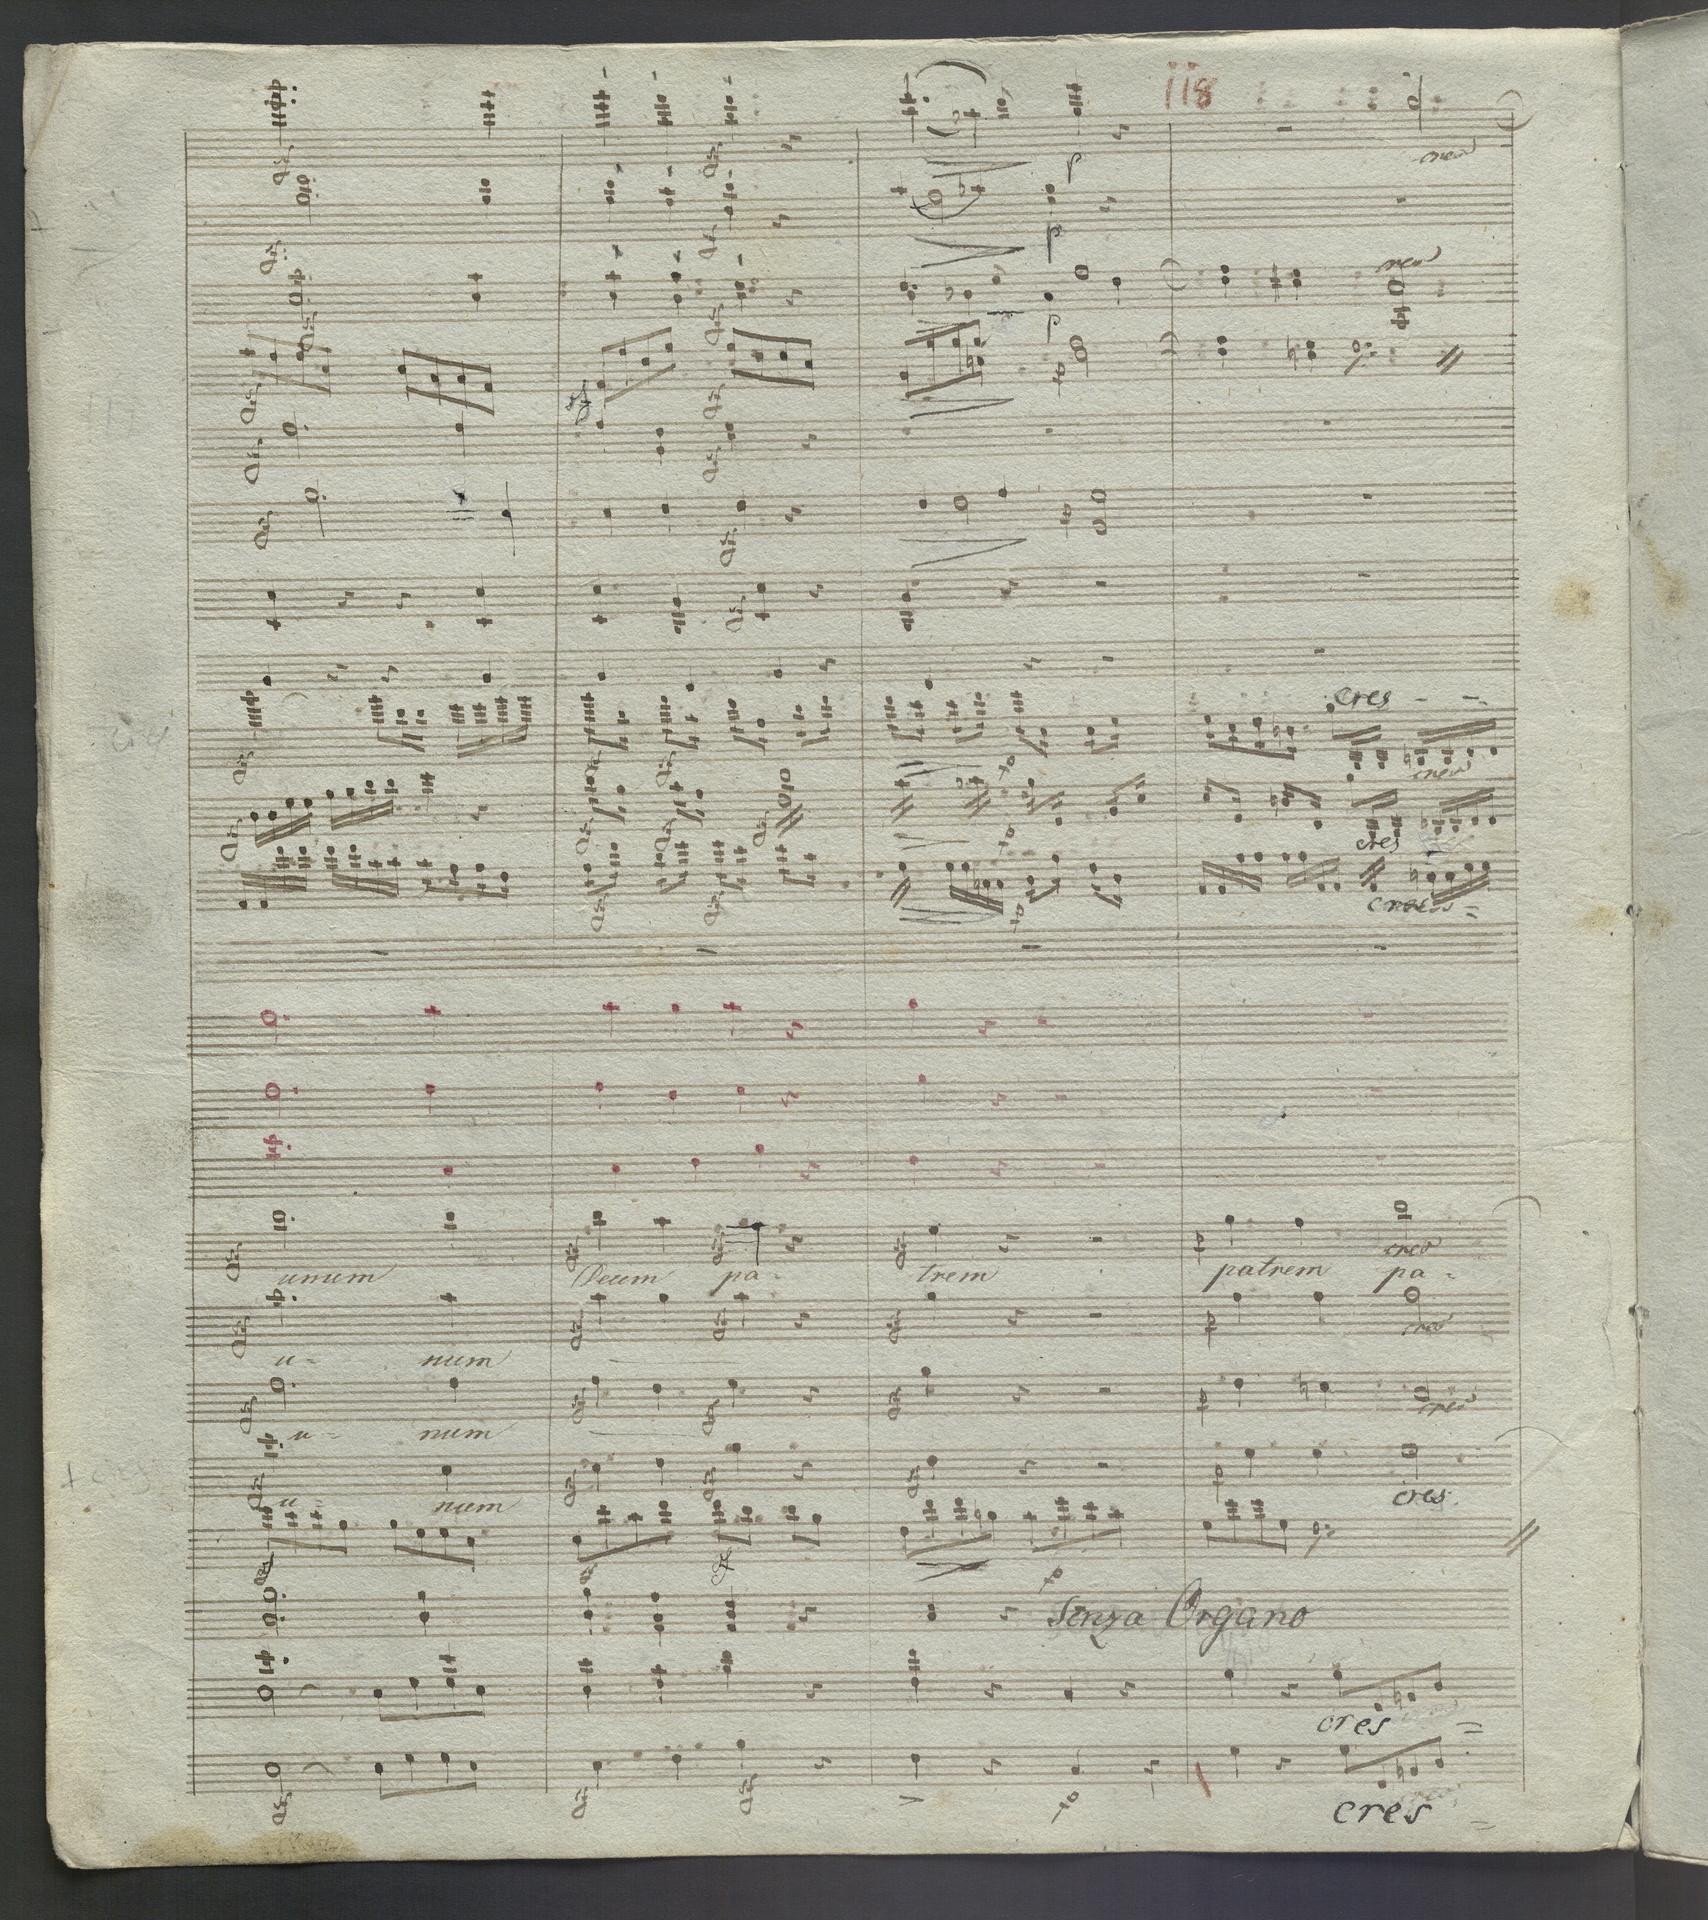 118
cres
p
p
cres
p
sf
cres - -
cres
cres
cres =
unum Deum pa- trem patrem pa-
cres
u- num
cres
u- num
cres
u- num
cres.
Senza Organo
cres =
cres =